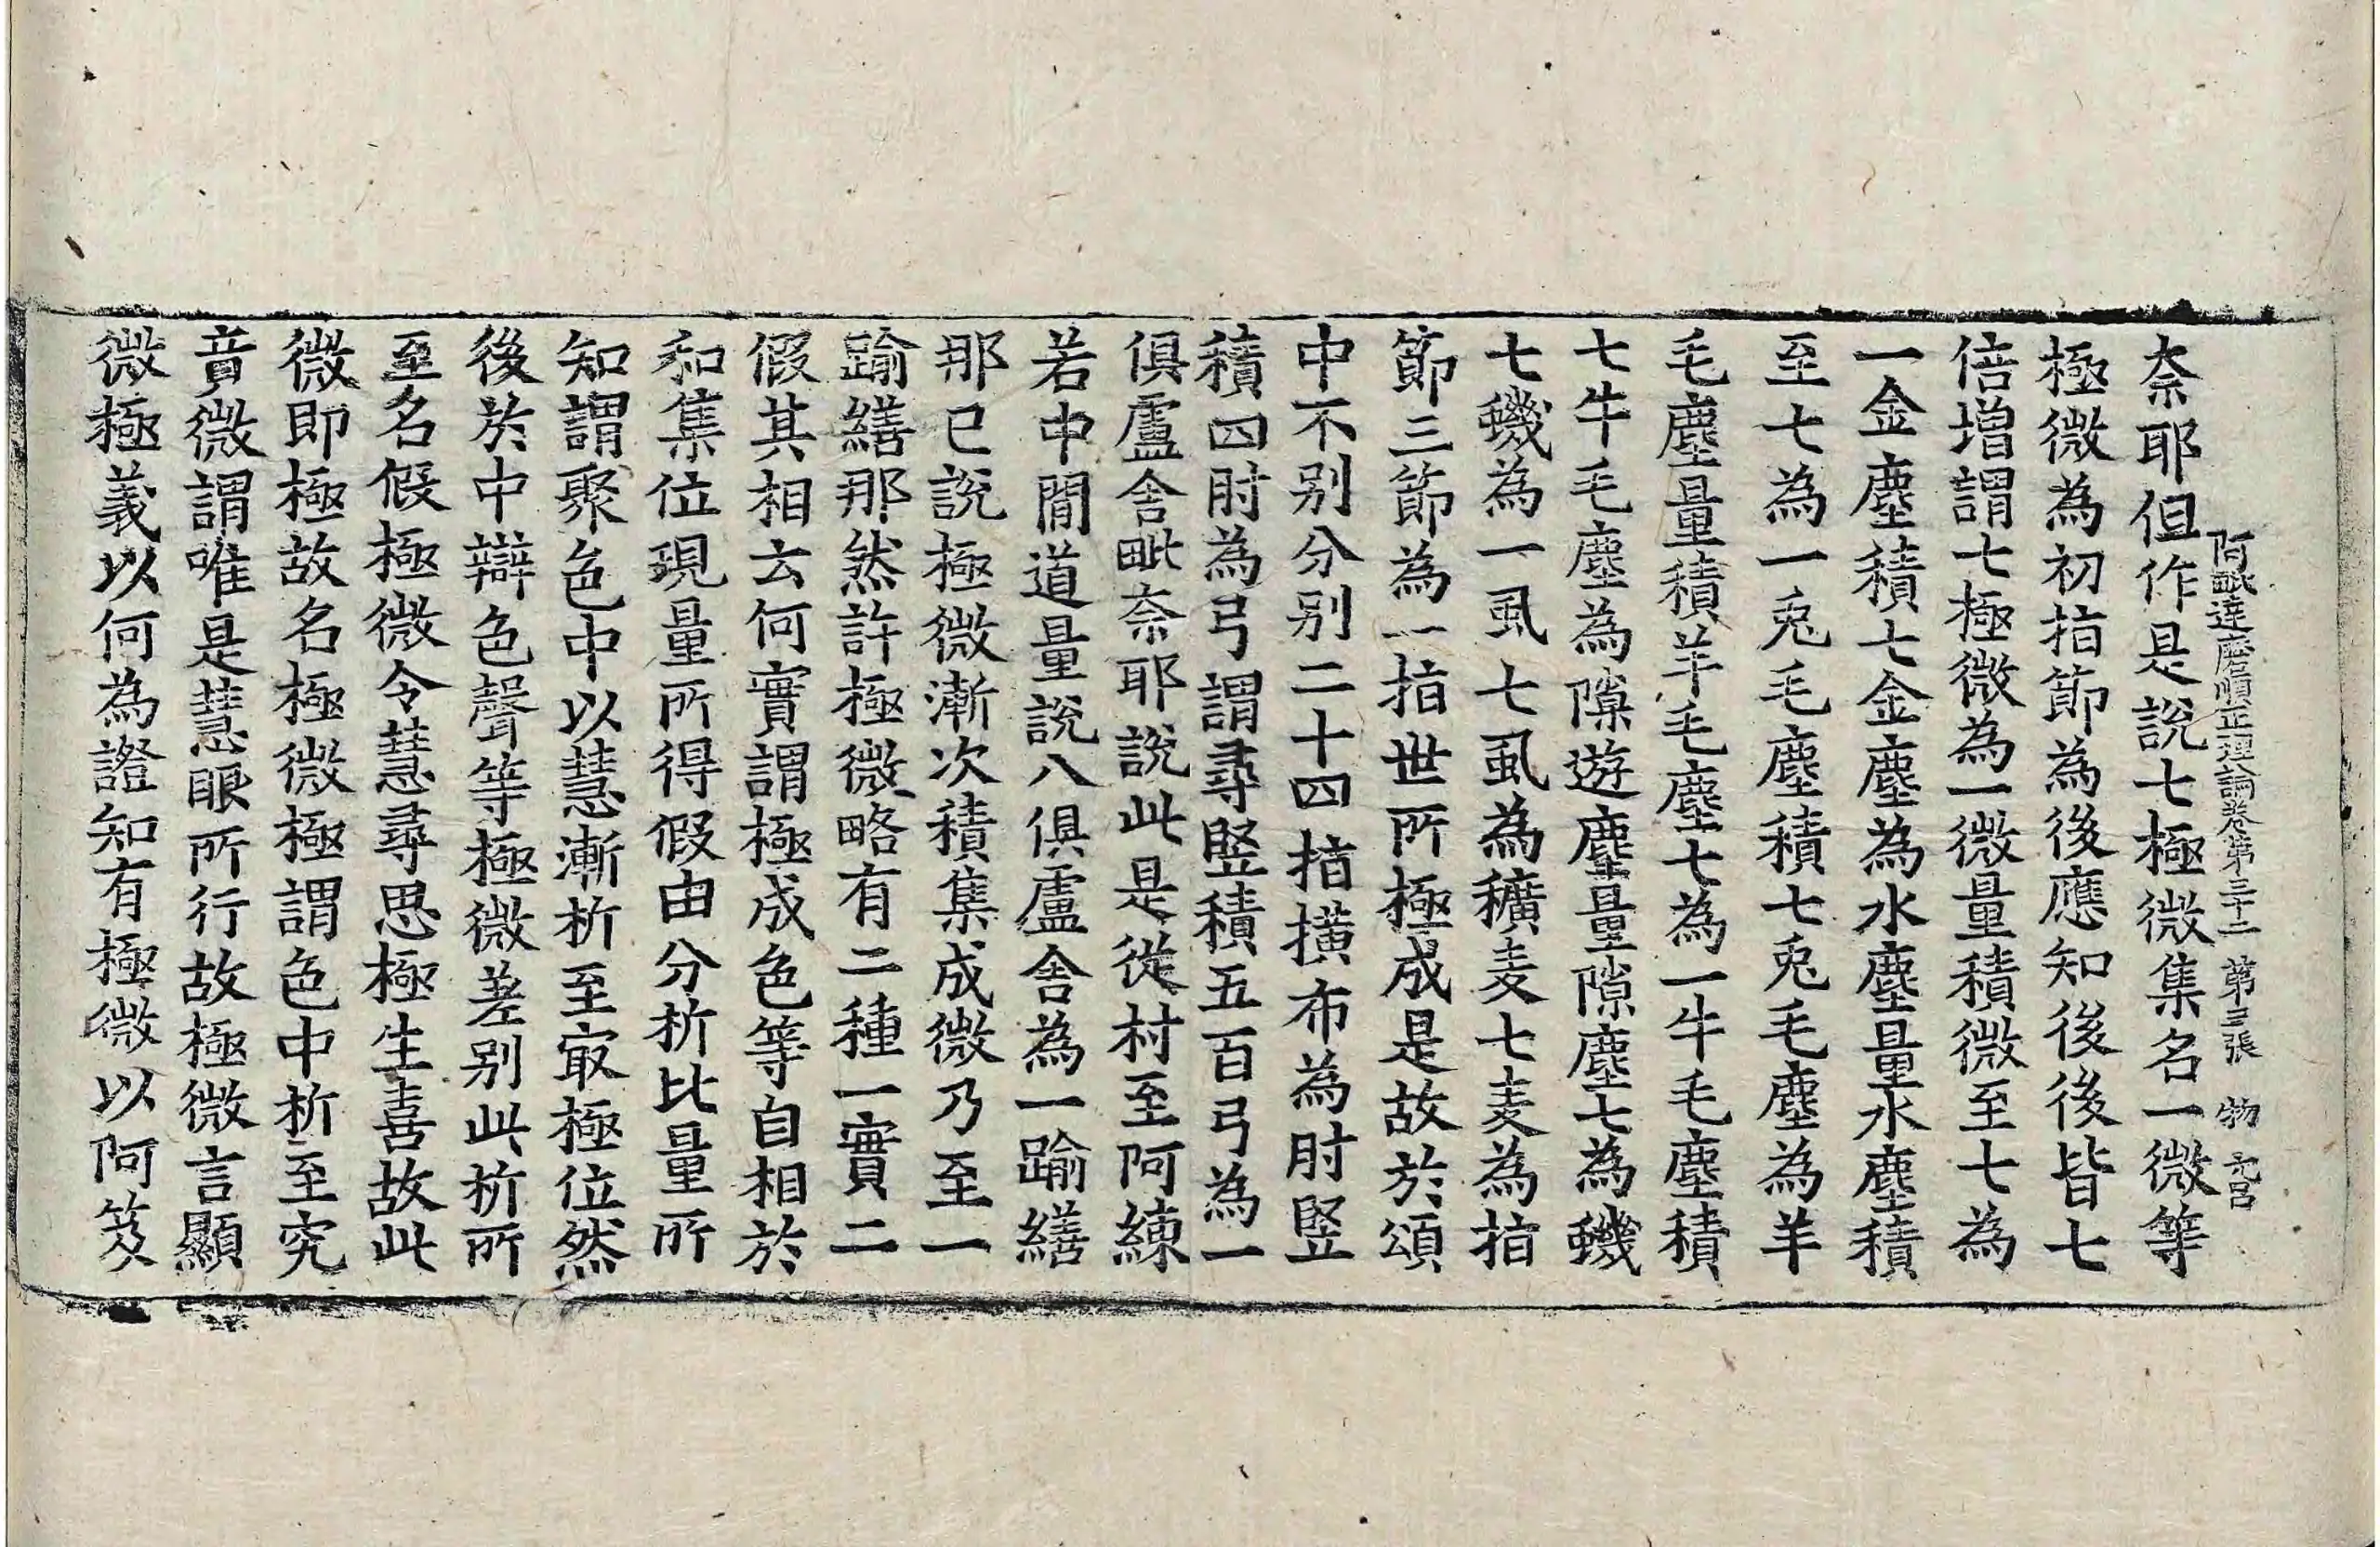 阿毗達磨順正理論卷第三十二 第三張 物
奈耶但作是說七極微集名一微等
極微為初指節為後應知後後皆七
倍增謂七極微為一微量積微至七為
一金塵積七金塵為水塵量水塵積
至七為一兎毛塵積七兎毛塵為羊
毛塵量積羊毛塵七為一牛毛塵積
七牛毛塵為隙遊塵量隙塵七為蟣
七蟣為一虱七虱為穬麦七麦為指
節三節為一指世所極成是故於頌
中不別分別二十四指撗布為肘竪
積四肘為弓謂尋竪積五百弓為一
俱盧舍毗奈耶說此是從村至阿練
若中間道量說八俱盧舍為一踰繕
那已說極微漸次積集成微乃至一
踰繕那然許極微略有二種一實二
假其相云何實謂極成色等自相於
和集位現量所得假由分析比量所
知謂聚色中以慧漸析至㝡極位然
後於中辯色聲等極微差別此析所
至名假極微令慧尋思極生喜故此
微即極故名極微極謂色中析至究
竟微謂唯是慧眼所行故極微言顯
微極義以何為證知有極微以阿笈